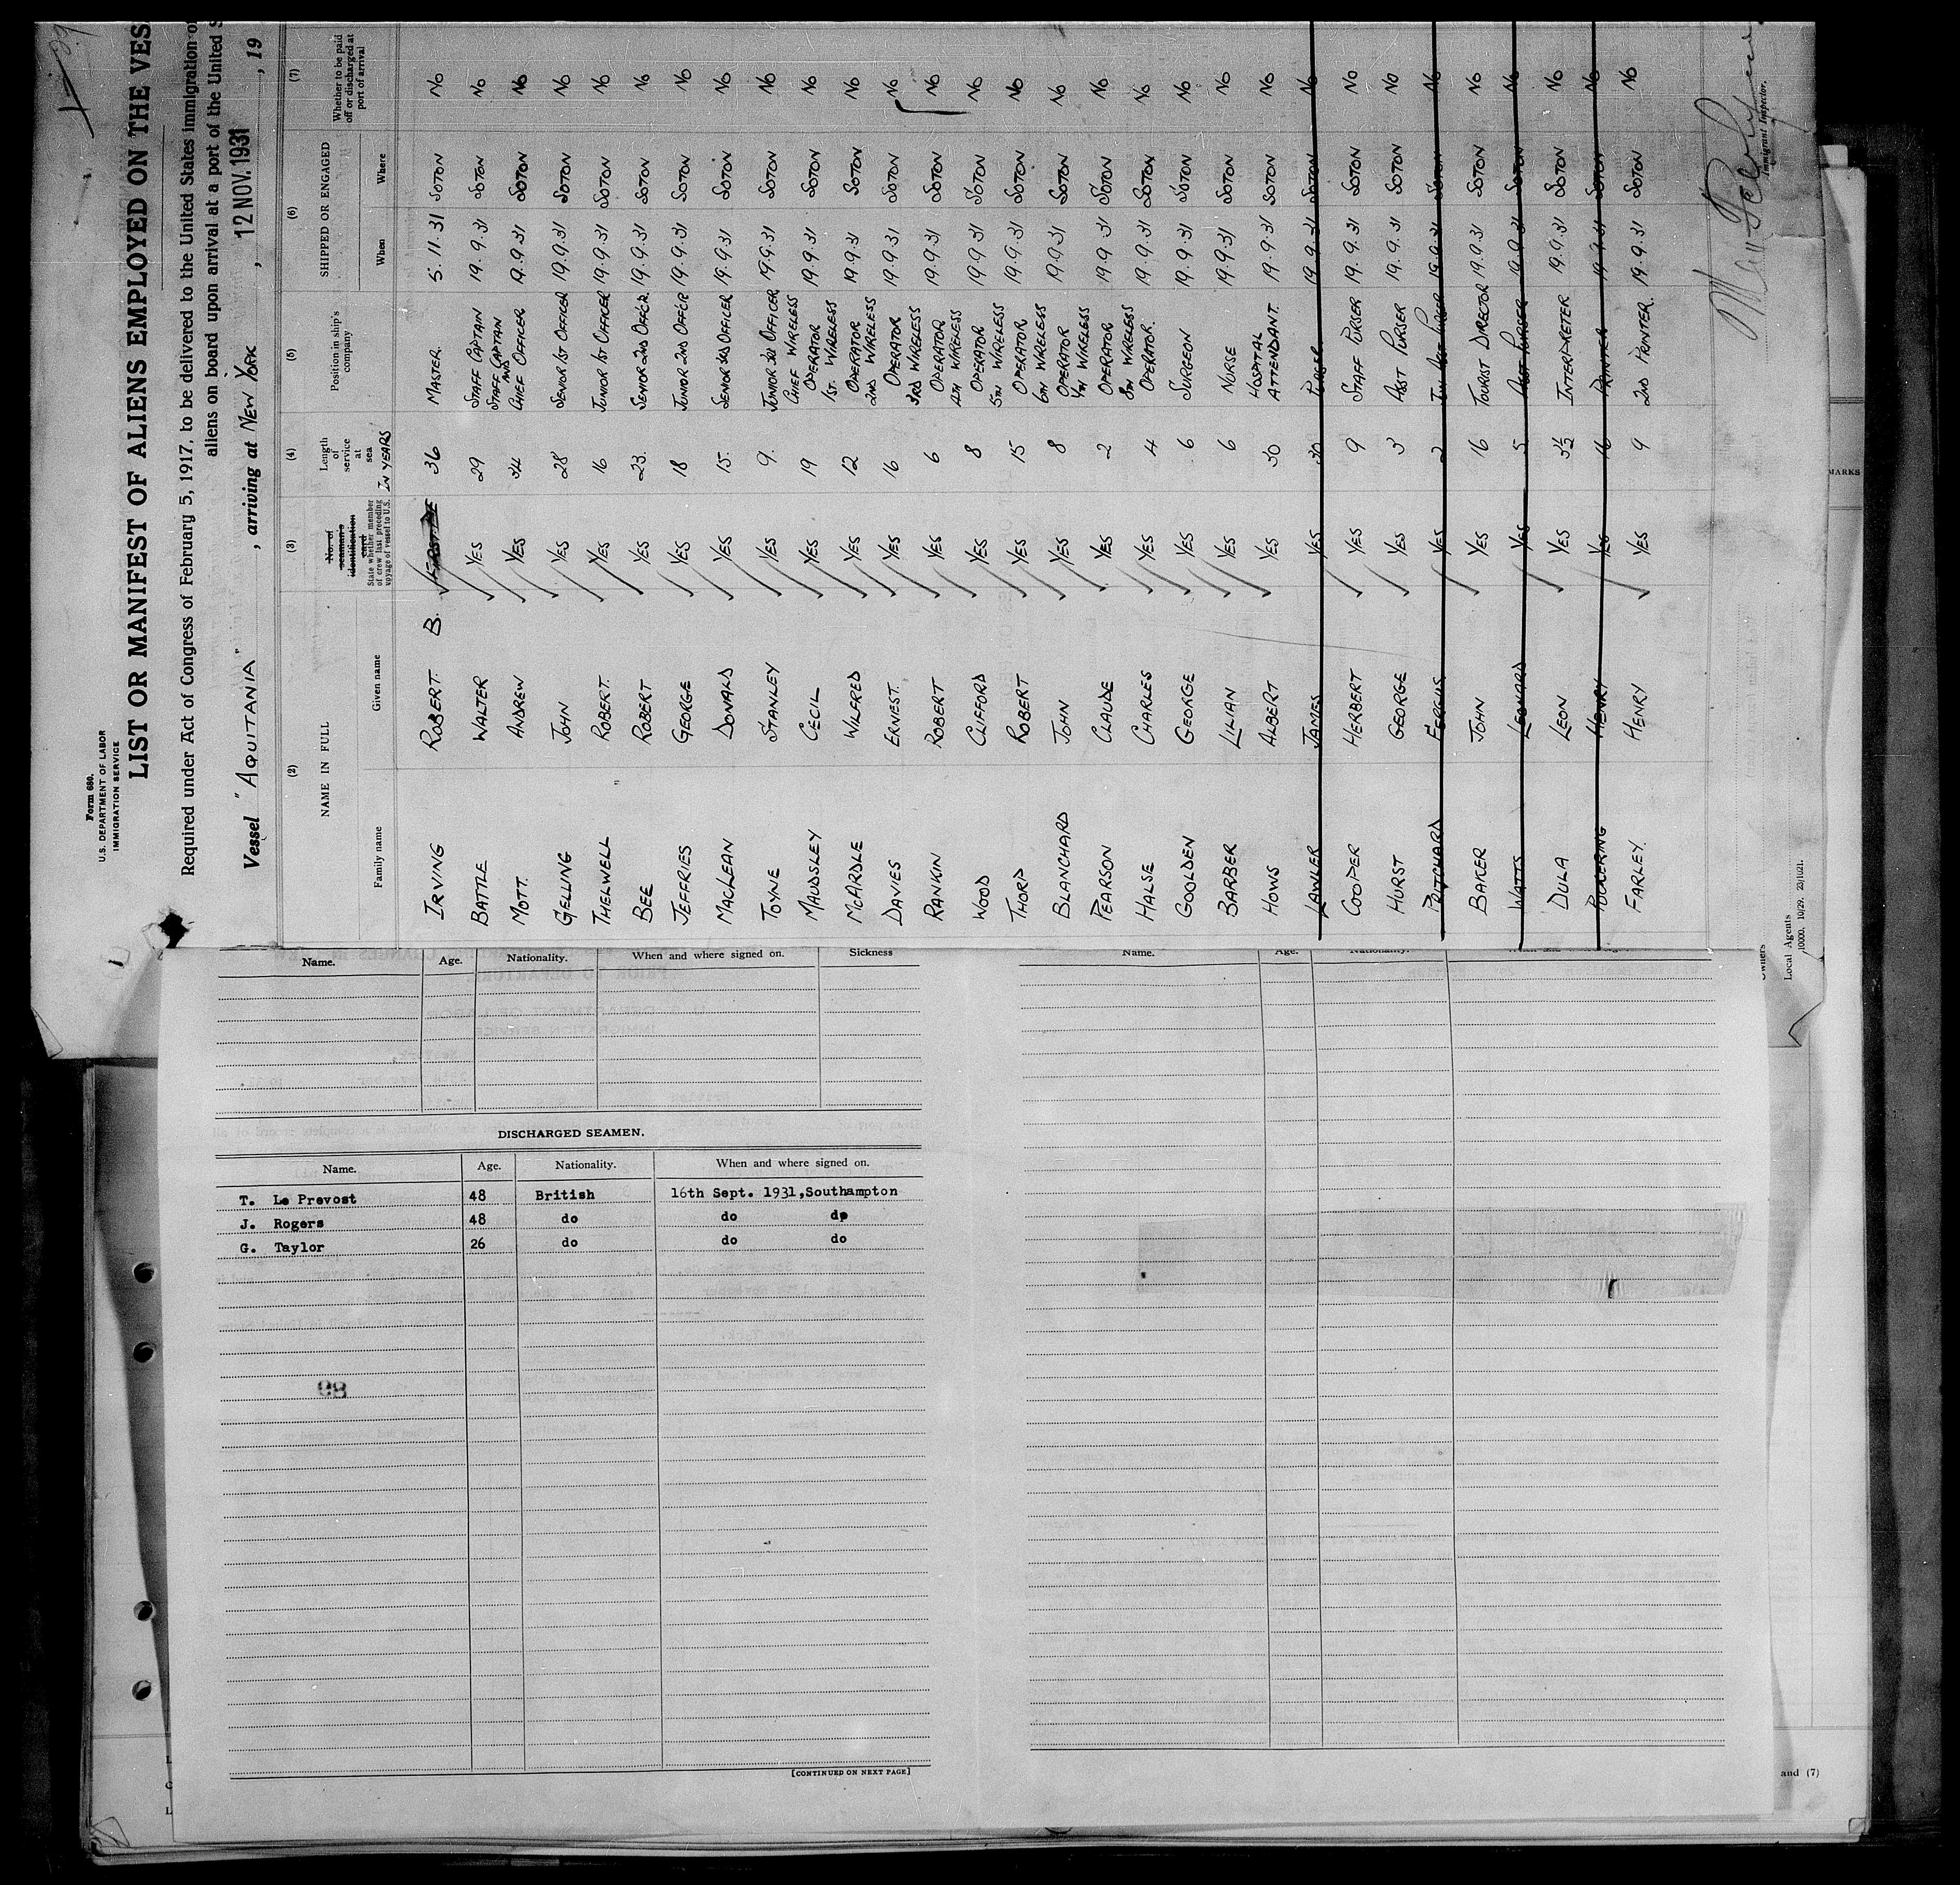 Form 680.
U.S. DEPARTMENT OF LABOR
IMMIGRATION SERVICE
LIST OR MANIFEST OF ALIENS EMPLOYED ON THE VES
Required under Act of Congress of February 5, 1917, to be delivered to the United States immigration
aliens on board upon arrival at a port of the United S
Vessel "AQUITANIA", arriving at NEW YORK, 12 NOV. 1931, 19
(2) (3) (4) (5) (6) (7)
NAME IN FULL
Family name Given name
No. of seaman's identification card
State whether member of crew last preceding voyage of vessel to U.S.
Length of service at sea IN YEARS
Position in ship's company
SHIPPED OR ENGAGED
When Where
Whether to be paid off or discharged at port of arrival
IRVING ROBERT B. 36 MASTER. 5.11.31 SOTON NO
BATTLE WALTER YES 29 STAFF CAPTAIN 19.9.31 SOTON NO
MOTT. ANDREW YES 34 STAFF CAPTAIN AND CHIEF OFFICER 19.9.31 SOTON NO
GELLING JOHN YES 28 SENIOR 1ST OFFICER 19.9.31 SOTON NO
THELWELL ROBERT. YES 16 JUNIOR 1ST OFFICER 19.9.31 SOTON NO
BEE ROBERT YES 23. SENIOR 2ND OFFCR. 19.9.31 SOTON NO
JEFFRIES GEORGE YES 18 JUNIOR 2ND OFFCR 19.9.31 SOTON NO
MACLEAN DONALD YES 15. SENIOR 3RD OFFICER 19.9.31 SOTON NO
TOYNE STANLEY YES 9. JUNIOR 3RD OFFICER 19.9.31 SOTON NO
MAUDSLEY CECIL YES 19 CHIEF WIRELESS OPERATOR 19.9.31 SOTON NO
MCARDLE WILFRED YES 12 1ST. WIRELESS OPERATOR 19.9.31 SOTON NO
DAVIES ERNEST. YES 16 2ND WIRELESS OPERATOR 19.9.31 SOTON NO
RANKIN ROBERT YES 6 3RD WIRELESS OPERATOR 19.9.31 SOTON NO
WOOD CLIFFORD YES 8 4TH WIRELESS OPERATOR 19.9.31 SOTON NO
THORP ROBERT YES 15 5TH WIRELESS OPERATOR 19.9.31 SOTON NO
BLANCHARD JOHN YES 8 6TH WIRELESS OPERATOR 19.9.31 SOTON NO
PEARSON CLAUDE YES 2 7TH WIRELESS OPERATOR 19.9.31 SOTON NO
HALSE CHARLES YES 4 8TH WIRELESS OPERATOR. 19.9.31 SOTON NO
GOOLDEN GEORGE YES 6 SURGEON 19.9.31 SOTON NO
BARBER LILIAN YES 6 NURSE 19.9.31 SOTON NO
HOWS ALBERT YES 30 HOSPITAL ATTENDANT. 19.9.31 SOTON NO
LAWLER JAMES YES 30 PURSER 19.9.31 SOTON NO
COOPER HERBERT YES 9 STAFF PURSER 19.9.31 SOTON NO
HURST GEORGE YES 3 ASST PURSER 19.9.31 SOTON NO
PRITCHARD FERGUS YES 2 JUN ASST PURSER 19.9.31 SOTON NO
BAKER JOHN YES 16 TOURIST DIRECTOR 19.9.31 SOTON NO
WATTS LEONARD YES 5 ASST PURSER 19.9.31 SOTON NO
DULA LEON YES 3½ INTERPRETER 19.9.31 SOTON NO
HENRY YES 16 PRINTER 19.9.31 SOTON NO
FARLEY. HENRY YES 9 2ND PRINTER. 19.9.31 SOTON NO
Immigrant Inspector.
Owners
Local Agents
10000. 10/29. 23/1021.
MARKS
Name. Age. Nationality. When and where signed on. Sickness
Name. Age. Nationality.
DISCHARGED SEAMEN.
Name. Age. Nationality. When and where signed on.
T. Le Prevost 48 British 16th Sept. 1931,Southampton
J. Rogers 48 do do do
G. Taylor 26 do do do
98
[CONTINUED ON NEXT PAGE]
and (7)